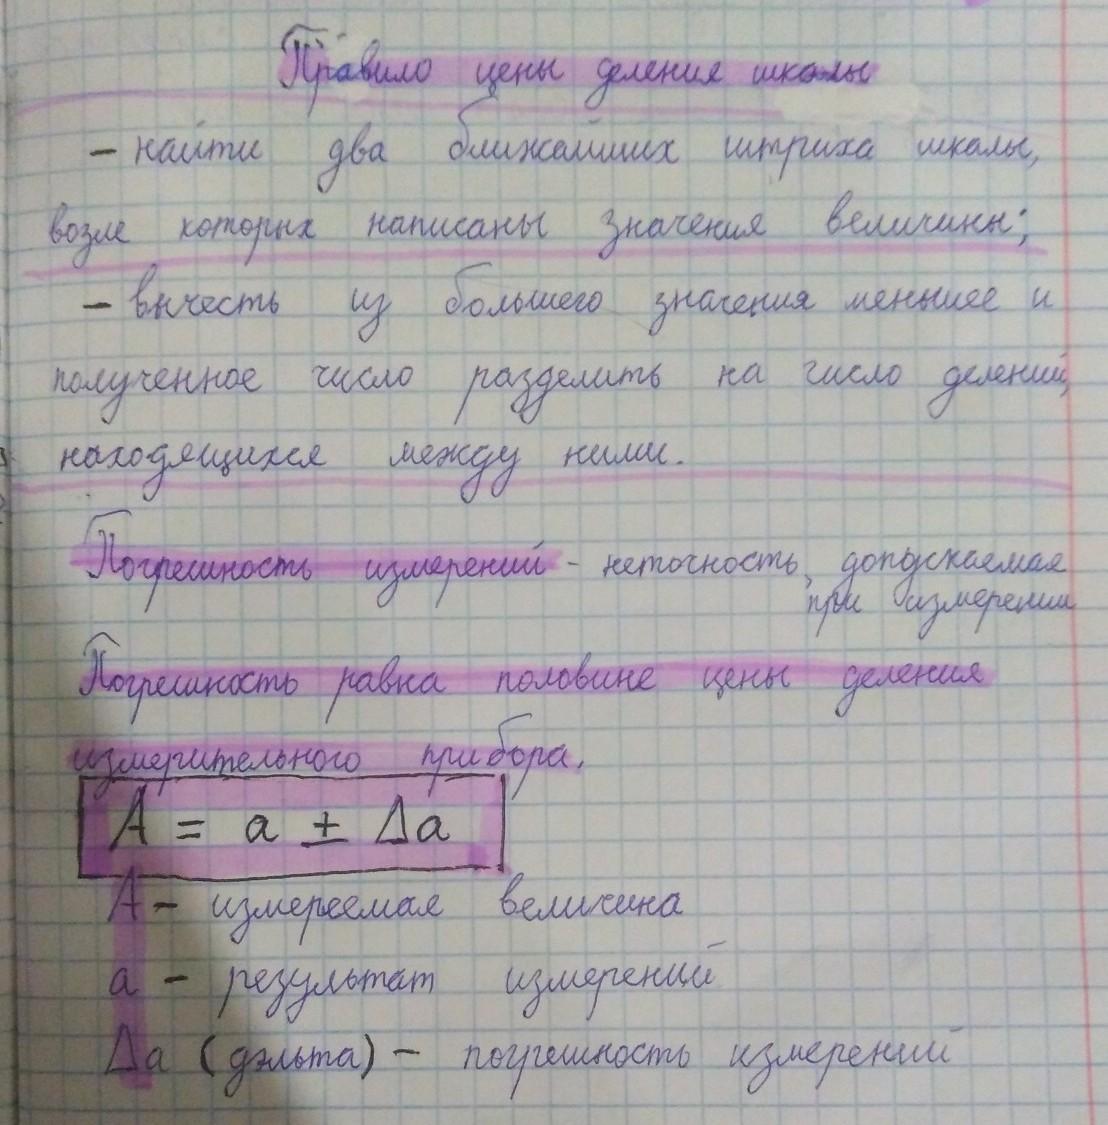 Правило цены деления шкалы
- найти два ближайших штриха шкалы,
возле которых написаны значения величины;
- вычесть из большего значения меньшее и
полученное число разделить на число делений,
находящихся между ними.
Погрешность измерений - неточность, допускаемая
при измерении
Погрешность равна половине цены деления
измерительного прибора.
A = a ± Δa
A - измереемая величина
a - результат измерений
Δa (дэльта) - погрешность измерений